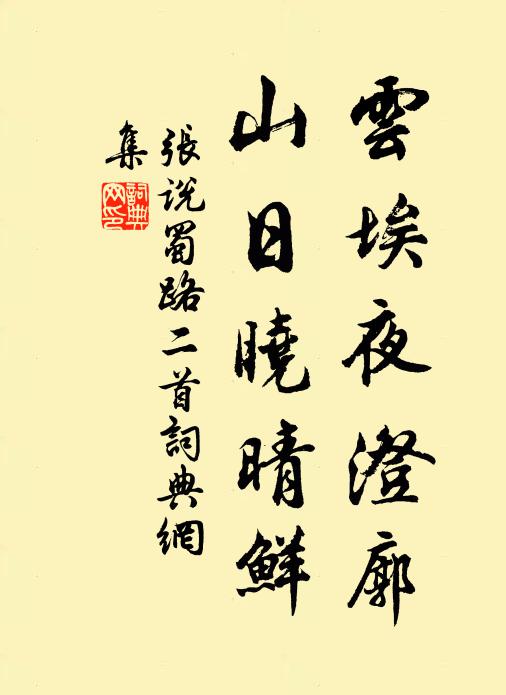 雲埃夜澄廓
山日曉晴鮮
張說蜀路二首詞典網
集
詞典
网印